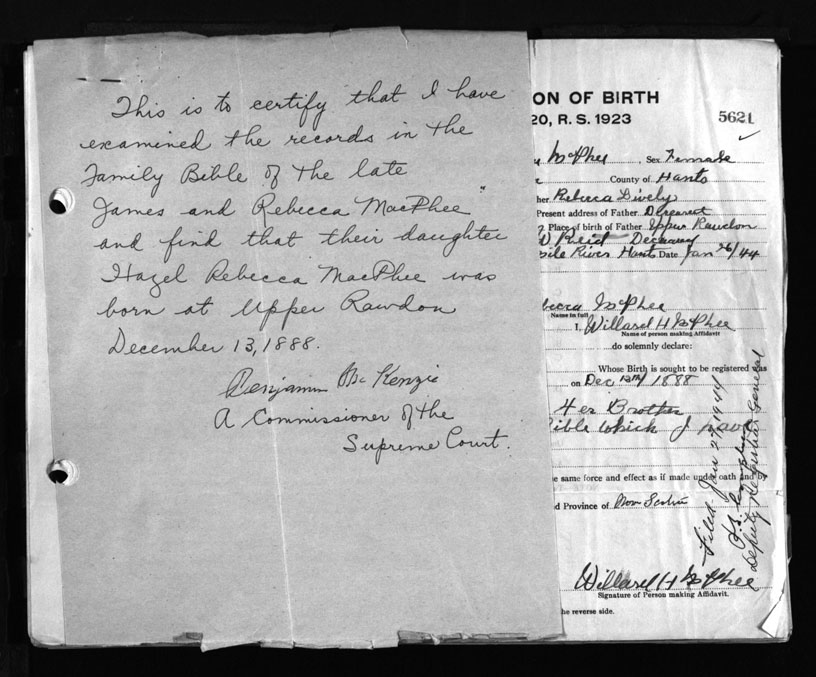 This is to certify that I have
examined the records in the
Family Bible of the late
James and Rebecca MacPhee"
and find that their daughter
Hazel Rebecca MacPhee was
born at Upper Rawdon
December 13, 1888.
Benjamin McKenzie
A Commissioner of the
Supreme Court.
ON OF BIRTH
20, R. S. 1923
5621
McPhee . Sex Female
County of Hants
her Rebecca Lively
Present address of Father Deceased
Place of birth of Father Upper Rawdon
Reid
River Hants Date Jan 26/44
becca McPhee
Name in full
I, Willard H McPhee
Name of person making Affidavit
do solemnly declare:
Whose Birth is sought to be registered was
on Dec 13th/1888
Her Brother
Bible which I have
e same force and effect as if made under oath and by
d Province of Nova Scotia
Willard H McPhee
Signature of Person making Affidavit.
he reverse side.
Filed Jan 27 1944
Deputy Registrar General